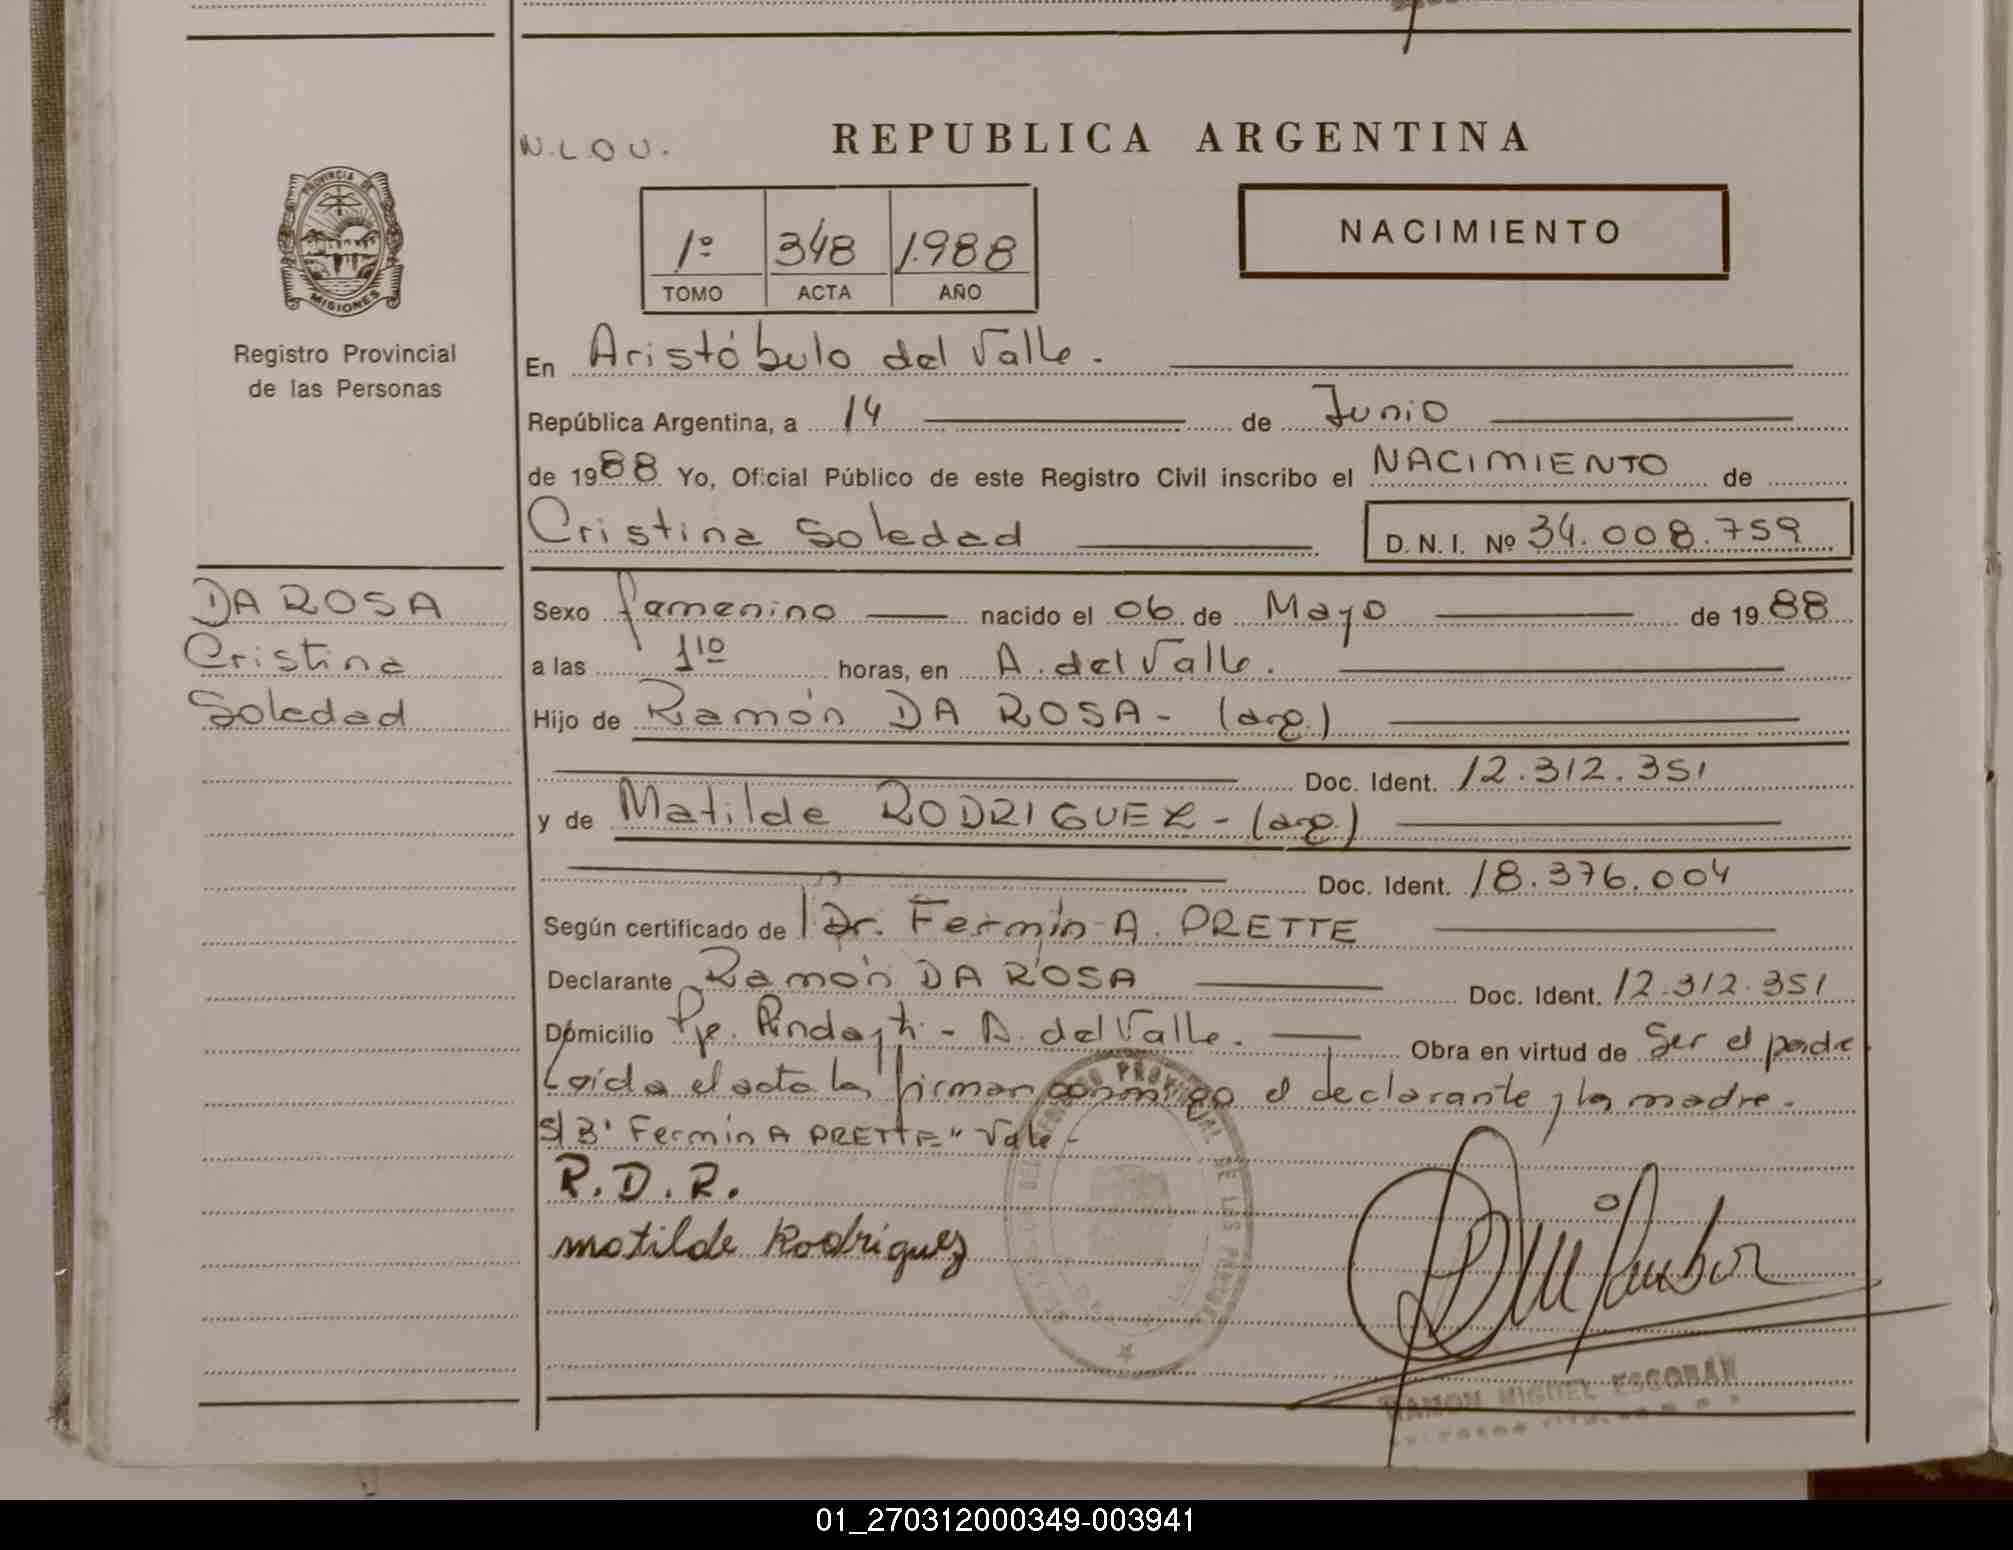 N.L.O.U.
REPUBLICA ARGENTINA
PROVINCIA DE
MISIONES
1º 348 1.988
TOMO ACTA AÑO
NACIMIENTO
Registro Provincial
de las Personas
En Aristóbulo del Valle.
República Argentina, a 14 de Junio
de 1988 Yo, Oficial Público de este Registro Civil inscribo el NACIMIENTO de
Cristina Soledad D. N. I. Nº 34.008.759
DA ROSA
Cristina
Soledad
Sexo femenino nacido el 06 de Mayo de 1988
a las 1¹⁰ horas, en A. del Valle.
Hijo de Ramón DA ROSA - (arg.)
Doc. Ident. 12.312.351
y de Matilde RODRIGUEZ - (arg.)
Doc. Ident. 18.376.004
Según certificado de Dr. Fermín A. PRETTE
Declarante Ramón DA ROSA Doc. Ident. 12.312.351
Domicilio Pje. - A. del Valle. Obra en virtud de Ser el padre
Leída el acta la firman conmigo el declarante y la madre.
S/B' Fermín A PRETTE" Vale -
R.D.R.
matilde Rodríguez
RAMON MIGUEL ESCOBAR
01_270312000349-003941